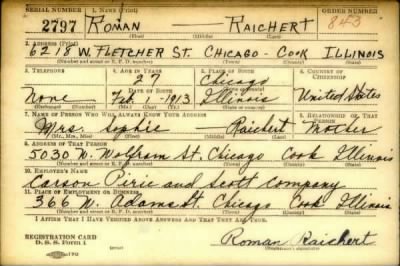 SERIAL NUMBER 1. NAME (Print) ORDER NUMBER
2797 ROMAN RAICHERT 843
(First) (Middle) (Last)
2. ADDRESS (Print)
6218 W. FLETCHER ST. CHICAGO - COOK ILLINOIS
(Number and street or R. F. D. number) (Town) (County) (State)
3. TELEPHONE 4. AGE IN YEARS 5. PLACE OF BIRTH 6. COUNTRY OF CITIZENSHIP
27 Chicago
DATE OF BIRTH (Town or county)
None 1913 Illinois United States
(Exchange) (Number) (Mo.) (Day) (Yr.) (State or country)
7. NAME OF PERSON WHO WILL ALWAYS KNOW YOUR ADDRESS 8. RELATIONSHIP OF THAT PERSON
Mrs. Sophie Raichert Mother
(Mr., Mrs., Miss) (First) (Middle) (Last)
9. ADDRESS OF THAT PERSON
5030 W. Wolfram St. Chicago Cook Illinois
(Number and street or R. F. D. number) (Town) (County) (State)
10. EMPLOYER'S NAME
Carson Pirie and Scott Company
11. PLACE OF EMPLOYMENT OR BUSINESS
366 W. Adams St. Chicago Cook Illinois
(Number and street or R. F. D. number) (Town) (County) (State)
I AFFIRM THAT I HAVE VERIFIED ABOVE ANSWERS AND THAT THEY ARE TRUE.
REGISTRATION CARD
D. S. S. Form 1 Roman Raichert